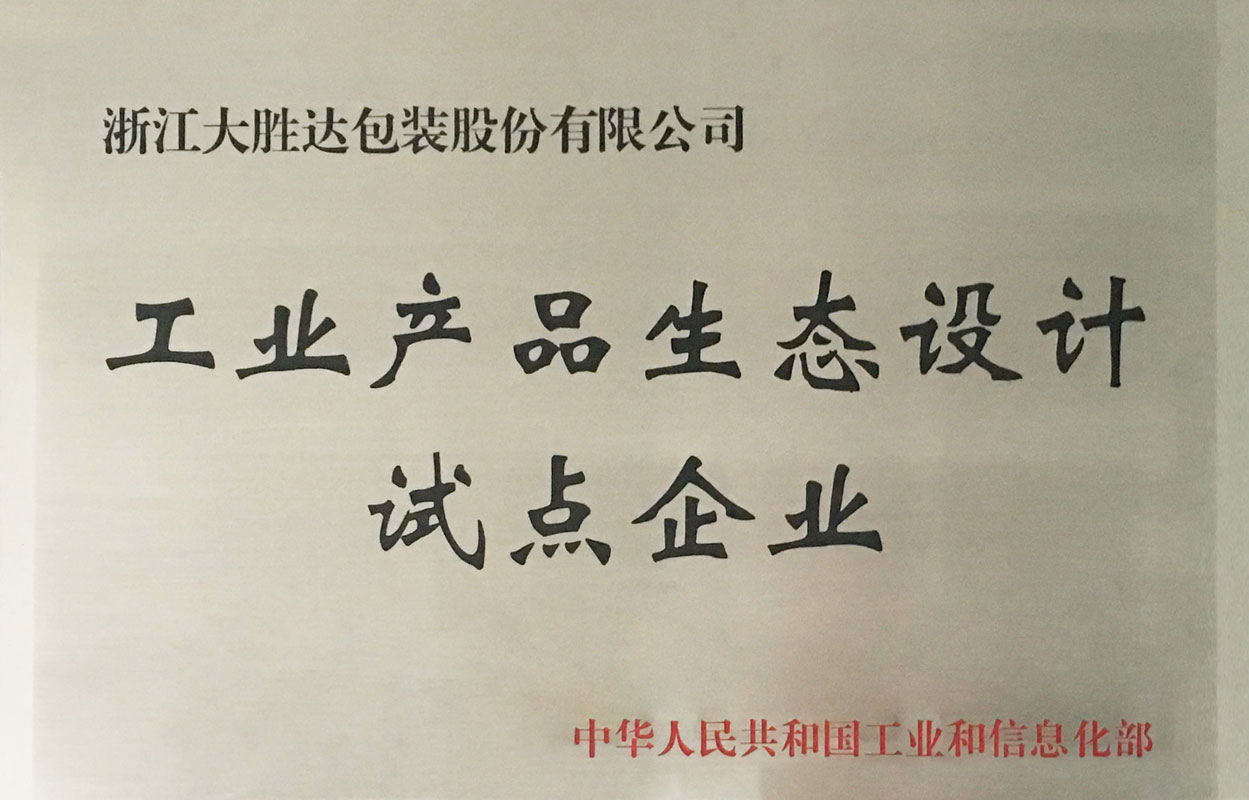 浙江大胜达包装股份有限公司
工业产品生态设计
试点企业
中华人民共和国工业和信息化部